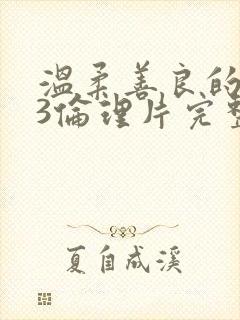 溫柔善良的
3倫理片完整
夏自成溪